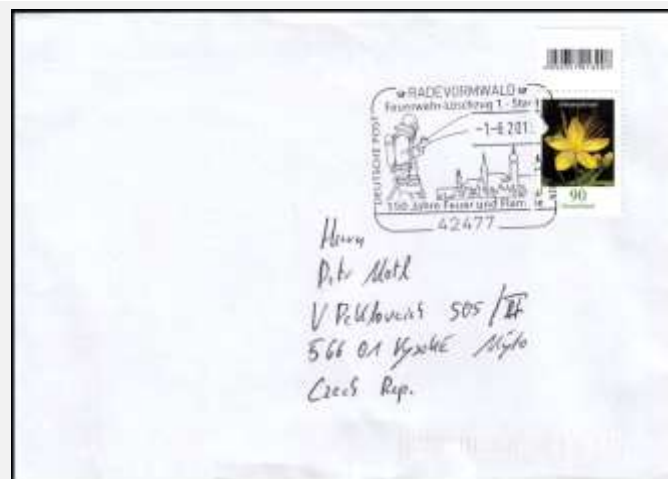 RADEVORMWALD
Feuerwehr-Löschzug 1 - Sta
-1-6.201
DEUTSCHE POST
150 Jahre Feuer und Flam
42477
90
Herrn
Petr Motl
V 505 / II
566 01 Vysoké Mýto
Czech Rep.